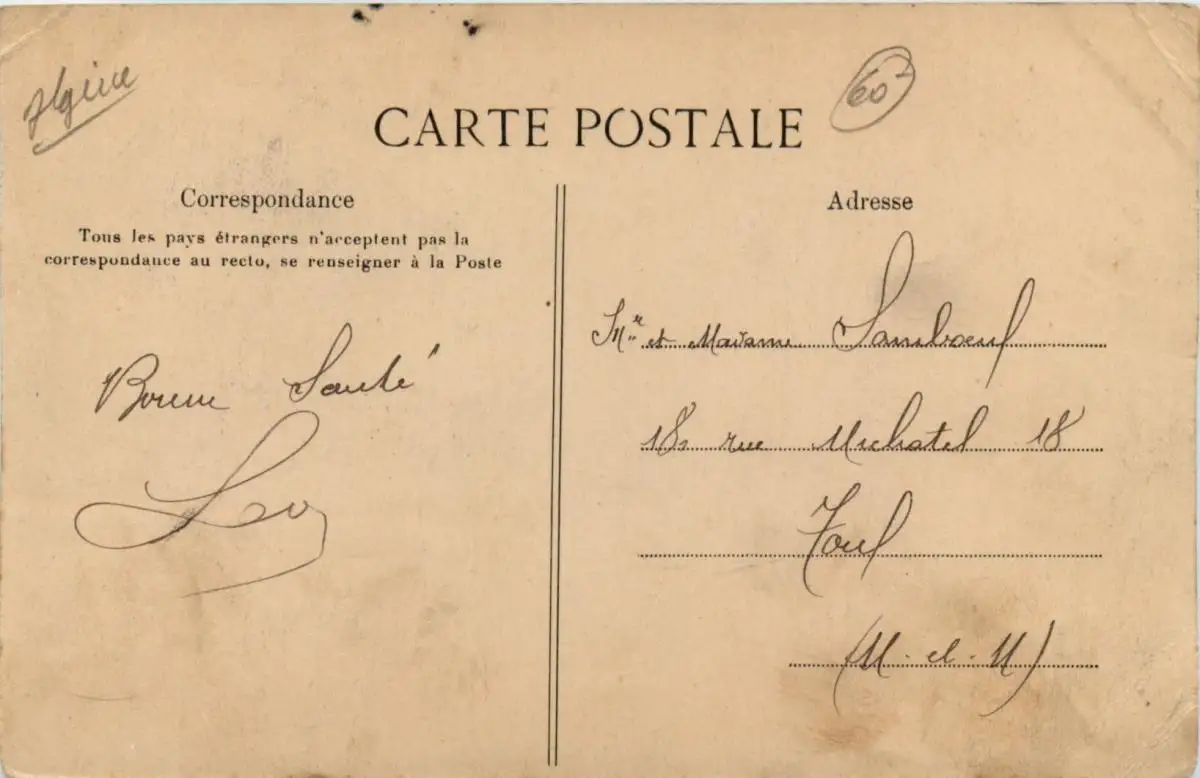 Algérie
CARTE POSTALE
60
Correspondance
Tous les pays étrangers n'acceptent pas la
correspondance au recto, se renseigner à la Poste
Bonne Santé
Leo
Adresse
Mr et Madame Samboeuf
18, rue Michatel 18
Toul
(M. et. M)